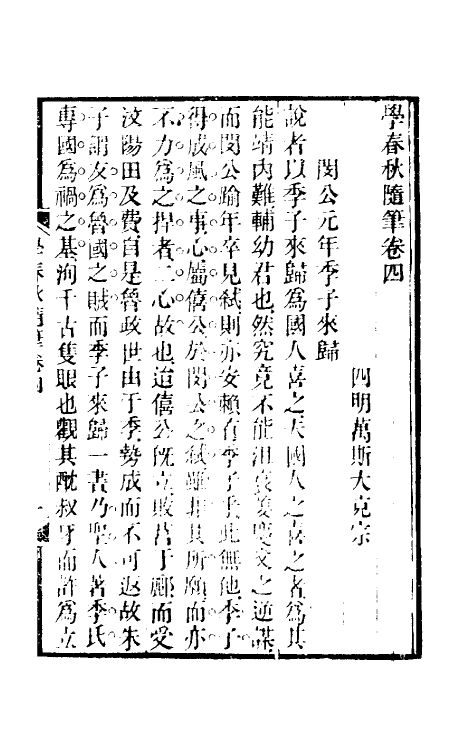 學春秋隨筆卷四
四明萬斯大充宗
閔公元年季子來歸
說者以季子來歸為國人喜之夫國人之喜之者為其
能靖內難輔幼君也然究竟不能沮哀姜慶父之逆謀
而閔公踰年卒見弒則亦安賴有季子乎此無他季子
得成風之事心屬僖公於閔公之弒雖非其所願而亦
不力為之捍者二心故也迨僖公旣立敗莒于酈而受
汶陽田及費自是魯政世由于季勢成而不可返故朱
子謂友為魯國之賊而季子來歸一書乃聖人著季氏
專國為禍之基洵千古隻眼也觀其酖叔牙而許為立
學春秋隨筆卷四
一